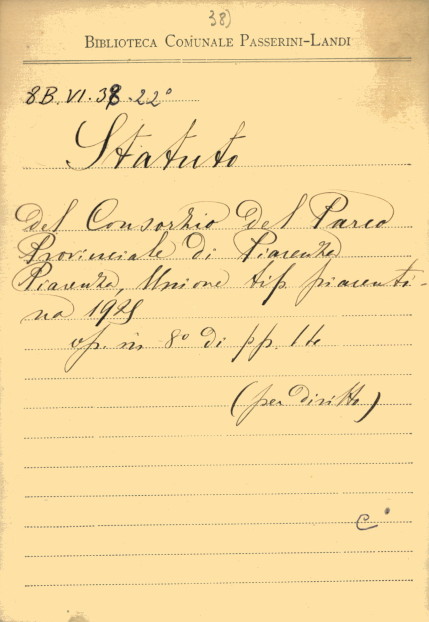 38)
BIBLIOTECA COMUNALE PASSERINI-LANDI
8B. VI. 38. 22°
Statuto
del Consorzio del Parco
Provinciale di Piacenza
Piacenza, Unione tip. piacenti-
na 1925
op. in 8° di pp. 14
(per diritto)
C